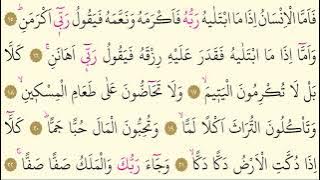 فَاَمَّا الْاِنْسَانُ اِذَا مَا ابْتَلٰيهُ رَبُّهُ فَاَكْرَمَهُ وَنَعَّمَهُ فَيَقُولُ رَبّٖٓي اَكْرَمَنِ ﴿١٥﴾
وَاَمَّٓا اِذَا مَا ابْتَلٰيهُ فَقَدَرَ عَلَيْهِ رِزْقَهُ فَيَقُولُ رَبّٖٓي اَهَانَنِ ﴿١٦﴾ كَلَّا
بَلْ لَا تُكْرِمُونَ الْيَتٖيمَ ﴿١٧﴾ وَلَا تَحَٓاضُّونَ عَلٰى طَعَامِ الْمِسْكٖينِ ﴿١٨﴾
وَتَأْكُلُونَ التُّرَاثَ اَكْلًا لَمًّا ﴿١٩﴾ وَتُحِبُّونَ الْمَالَ حُبًّا جَمًّا ﴿٢٠﴾ كَلَّٓا
اِذَا دُكَّتِ الْاَرْضُ دَكًّا دَكًّا ﴿٢١﴾ وَجَٓاءَ رَبُّكَ وَالْمَلَكُ صَفًّا صَفًّا ﴿٢٢﴾